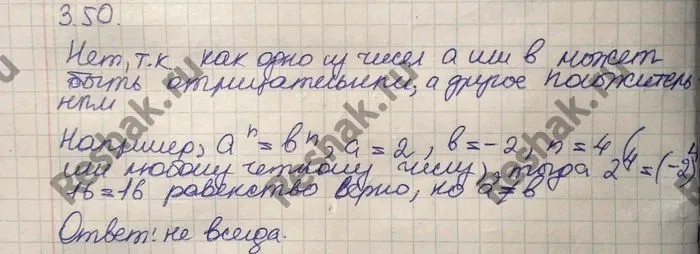 3.50.
Нет, т.к как одно из чисел а или в может
быть отрицательным, а другое положитель
ным
Например, a^n = b^n, a = 2, b = -2, n = 4 (
или любому четному числу), тогда 2^4 = (-2)^4
16 = 16 равенство верно, но a ≠ b
Ответ: не всегда.
Reshak.ru